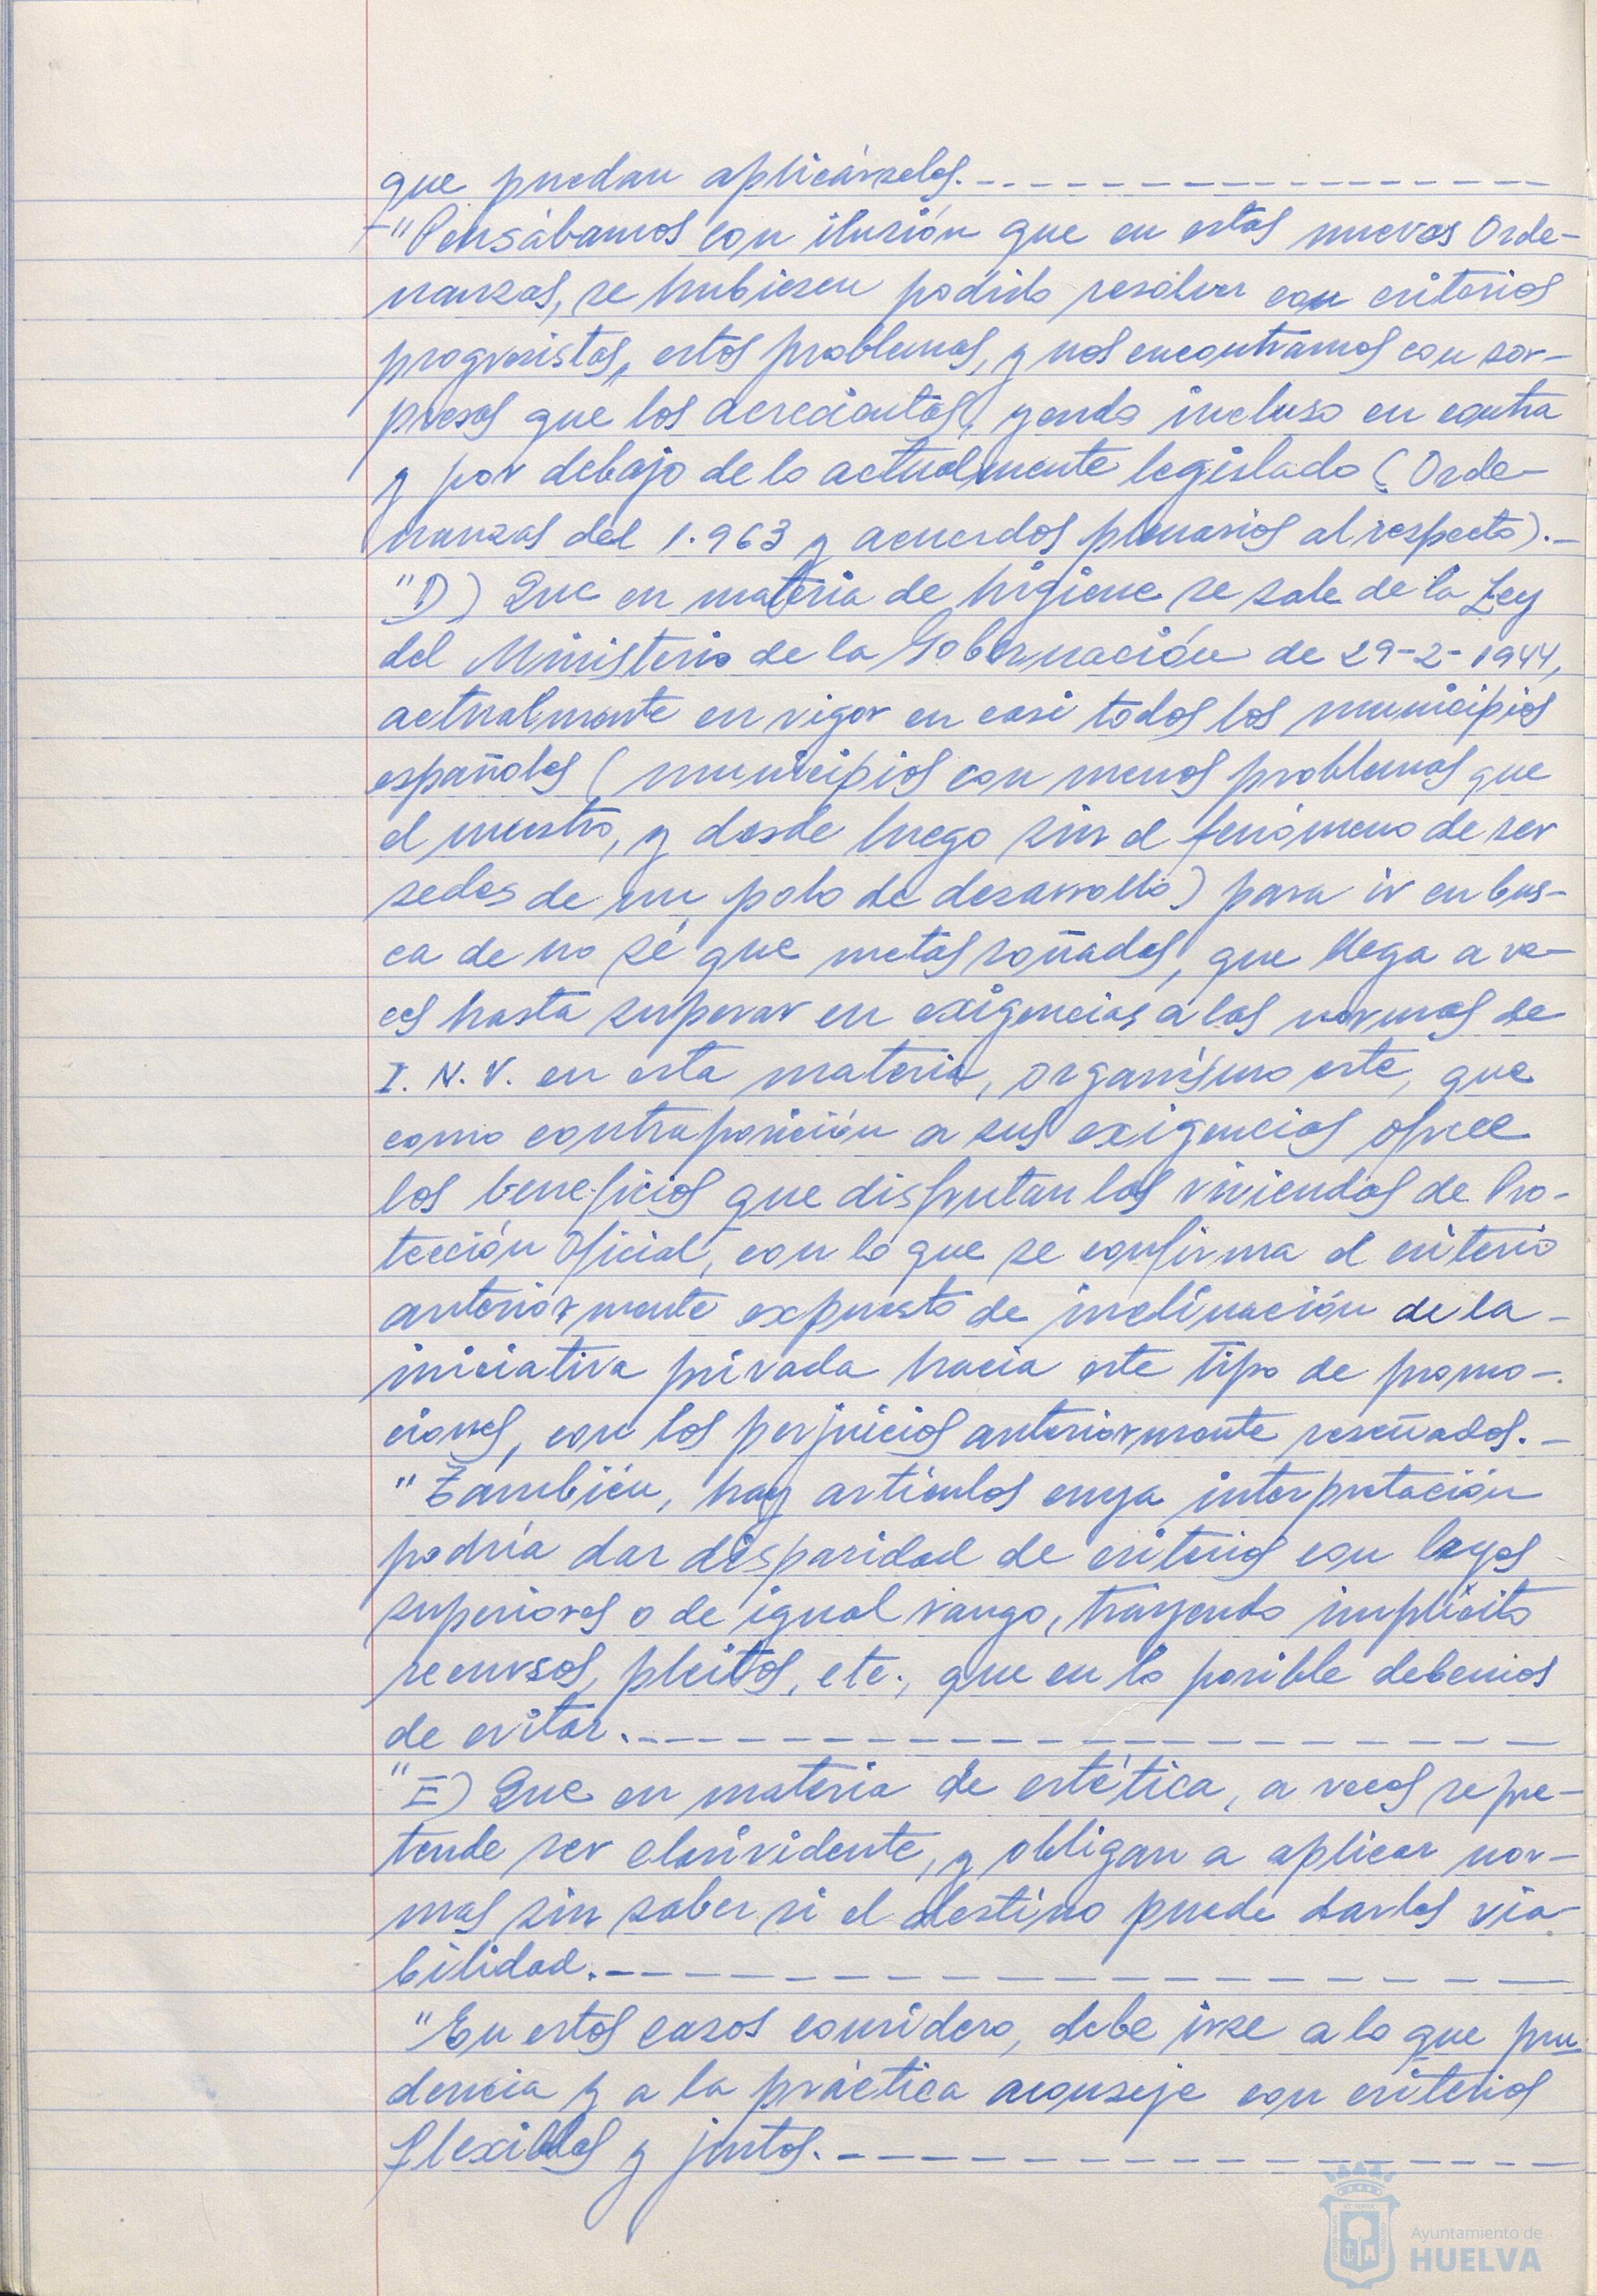 que puedan aplicárseles.- - - - - - - - - - - - - -
"Pensábamos con ilusión que en estas nuevas Orde-
nanzas, se hubiesen podido resolver con criterios
progresistas, estos problemas, y nos encontramos con sor-
presas que los acrecientas, yendo incluso en contra
y por debajo de lo actualmente legislado (Orde-
nanzas del 1.963 y acuerdos plenarios al respecto).-
"D) Que en materia de higiene se sale de la Ley
del Ministerio de la Gobernación de 29-2-1944,
actualmente en vigor en casi todos los municipios
españoles (municipios con menos problemas que
el nuestro, y desde luego sin el fenómeno de ser
sedes de un polo de desarrollo) para ir en bus-
ca de no sé que metas soñadas, que llega a ve-
ces hasta superar en exigencias a las normas de
I. N. V. en esta materia, organismo este, que
como contraposición a sus exigencias ofrece
los beneficios que disfrutan las viviendas de Pro-
tección Oficial, con lo que se confirma el criterio
anteriormente expuesto de inclinación de la-
iniciativa privada hacia este tipo de promo-
ciones, con los perjuicios anteriormente reseñados.-
"También, hay artículos cuya interpretación
podría dar disparidad de criterios con leyes
superiores o de igual rango, trayendo implícito
recursos, pleitos, etc., que en lo posible debemos
de evitar.- - - - - - - - - - - - - - - - - -
"E) Que en materia de estética, a veces se pre-
tende ser clarividente, y obligan a aplicar nor-
mas sin saber si el destino puede darles via-
bilidad.- - - - - - - - - - - - - - - - - -
"En estos casos considero, debe irse a lo que pru-
dencia y a la práctica aconseje con criterios
flexibles y justos.- - - - - - - - - - - - - -
Ayuntamiento de
HUELVA